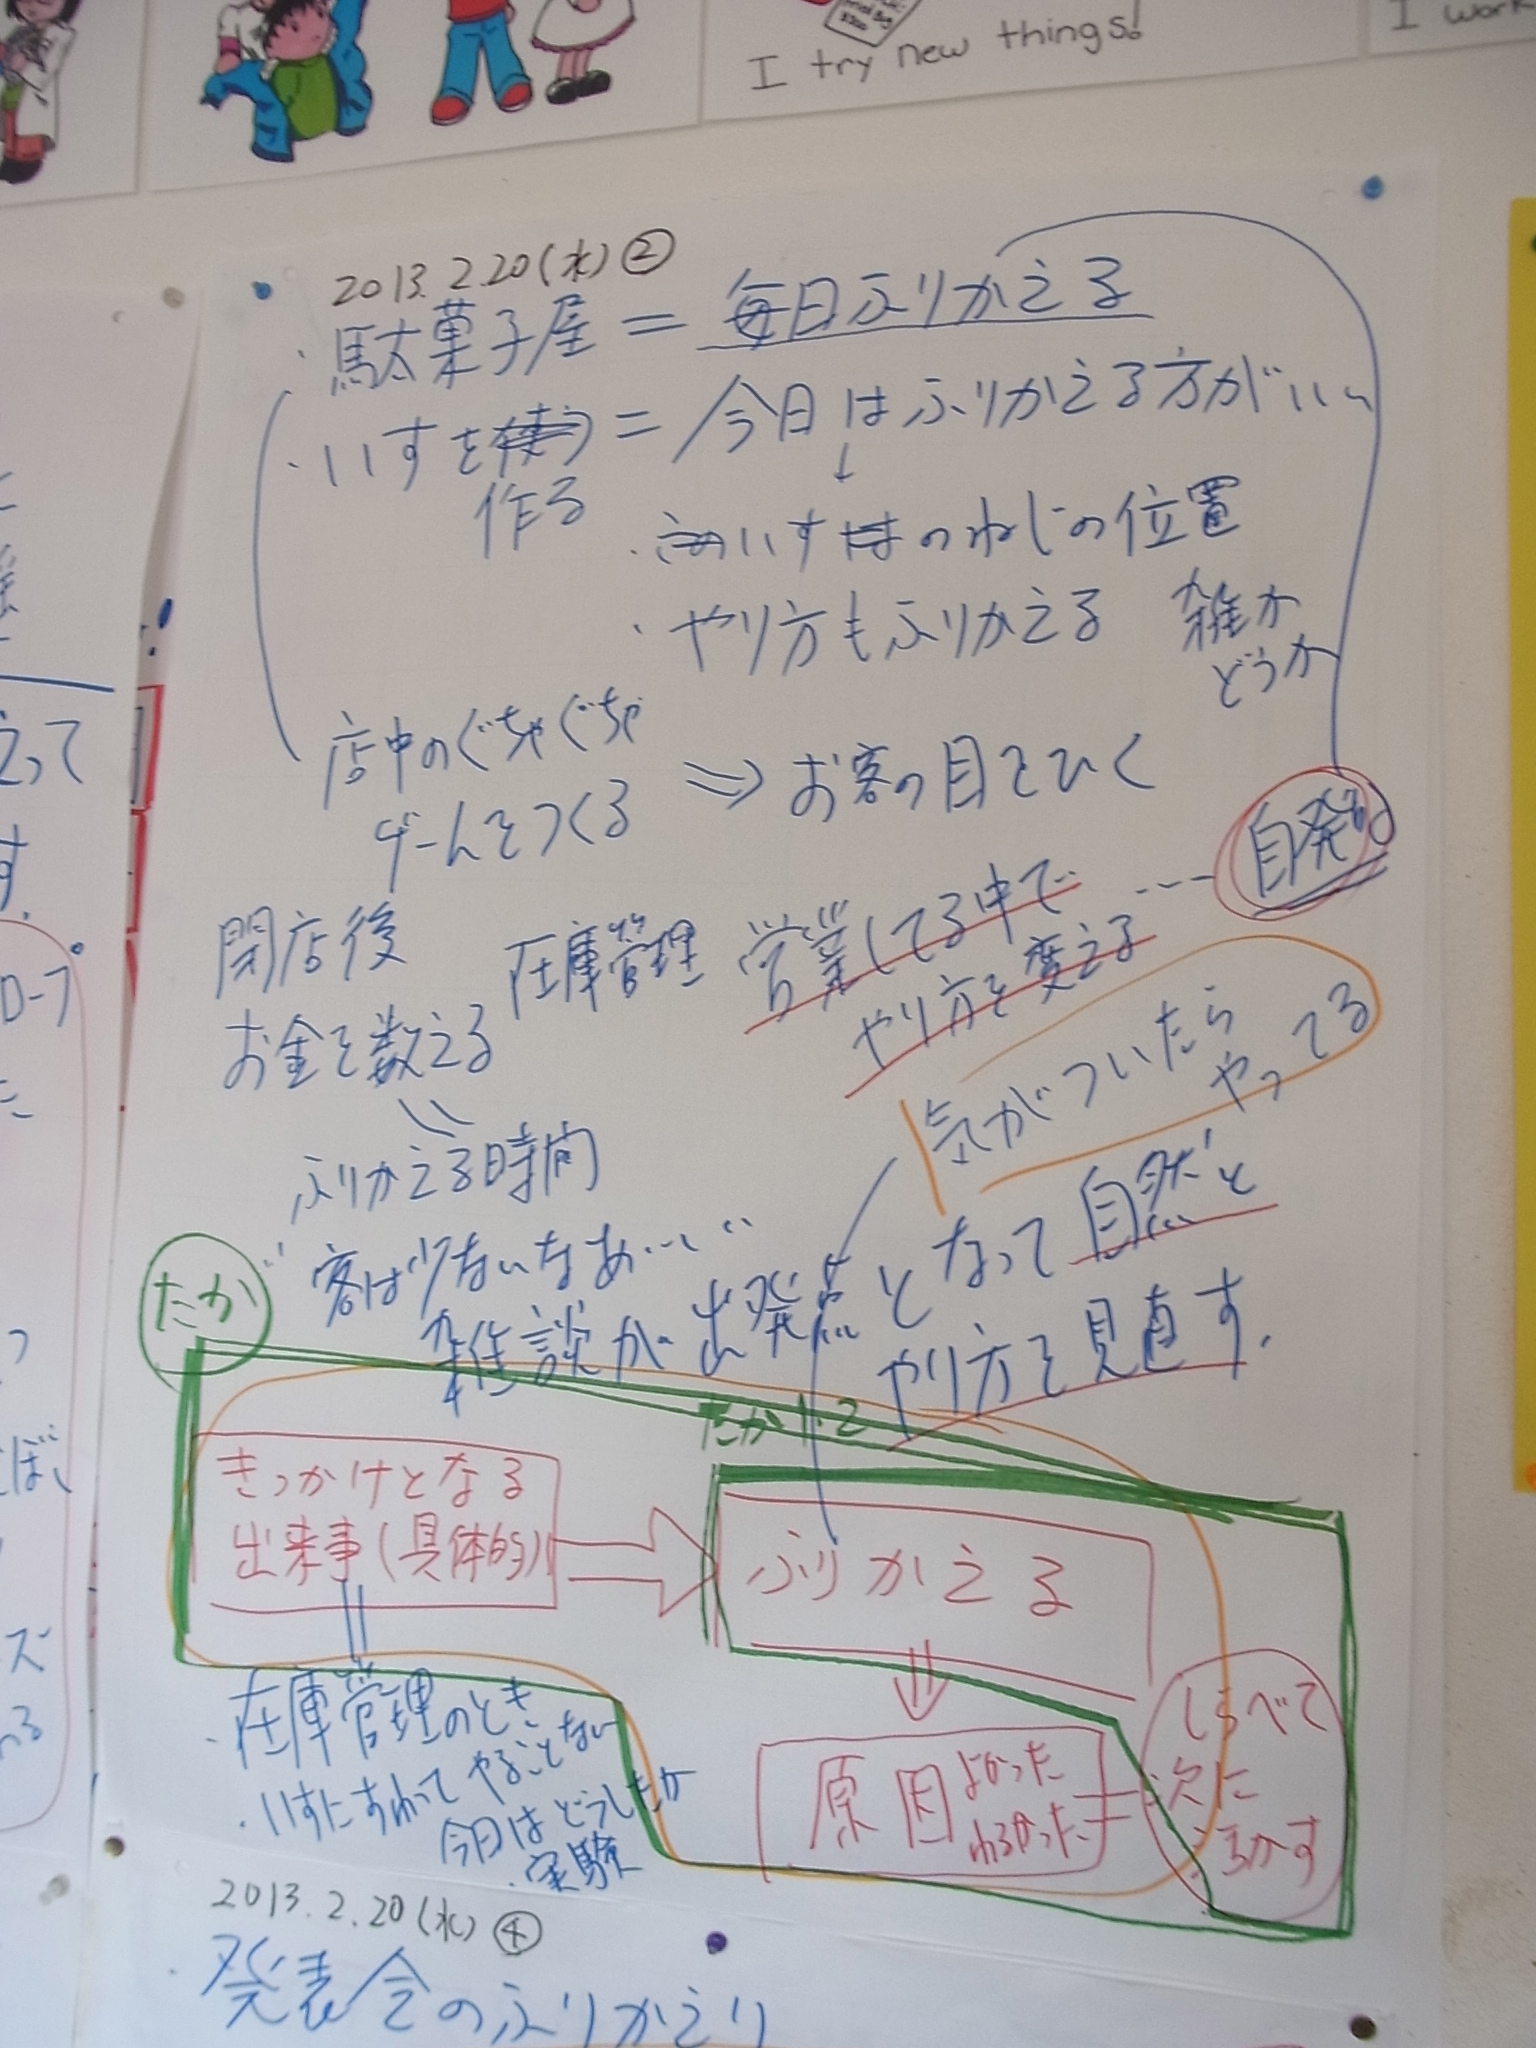 I try new things!
I work
2013.2.20(水)②
・駄菓子屋=毎日ふりかえる
・いすを使う=今日はふりかえる方がいい
作る
↓
・いすはのねじの位置
・やり方もふりかえる
雑か
どうか
店中のぐちゃぐちゃ
ゲームをつくる
⇒お客の目をひく
自発的
閉店後
お金を数える
在庫管理
営業してる中で
やり方を変える…
気がついたら
やってる
ふりかえる時間
"客は少ないなあ…"
雑談が出発点となって自然と
やり方を見直す.
たか
きっかけとなる
出来事(具体的)
ふりかえる
原因
よかった
わるかった
しらべて
次に
・在庫管理のとき
・いすにすわってやることない
今日はどうしたか
・実験
2013.2.20(水)④
・発表会のふりかえり
えって
す.